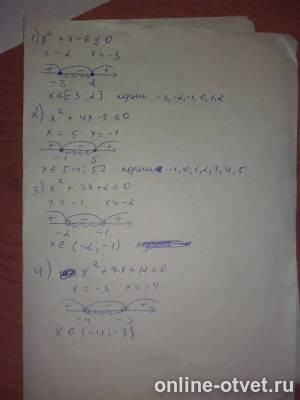 1) x² + x - 6 ≤ 0
x = 2 x = -3
+ - +
-3 2
x ∈ [-3; 2] корни -3, -2, -1, 0, 1, 2
2) x² + 4x - 5 ≤ 0
x = 5 x = -1
+ - +
-1 5
x ∈ [-1; 5] корни -1, 0, 1, 2, 3, 4, 5
3) x² + 3x + 2 < 0
x = -1 x = -2
+ - +
-2 -1
x ∈ (-2; -1)
4) x² + 7x + 12 < 0
x = -3 x = -4
+ - +
-4 -3
x ∈ (-4; -3)
online-otvet.ru